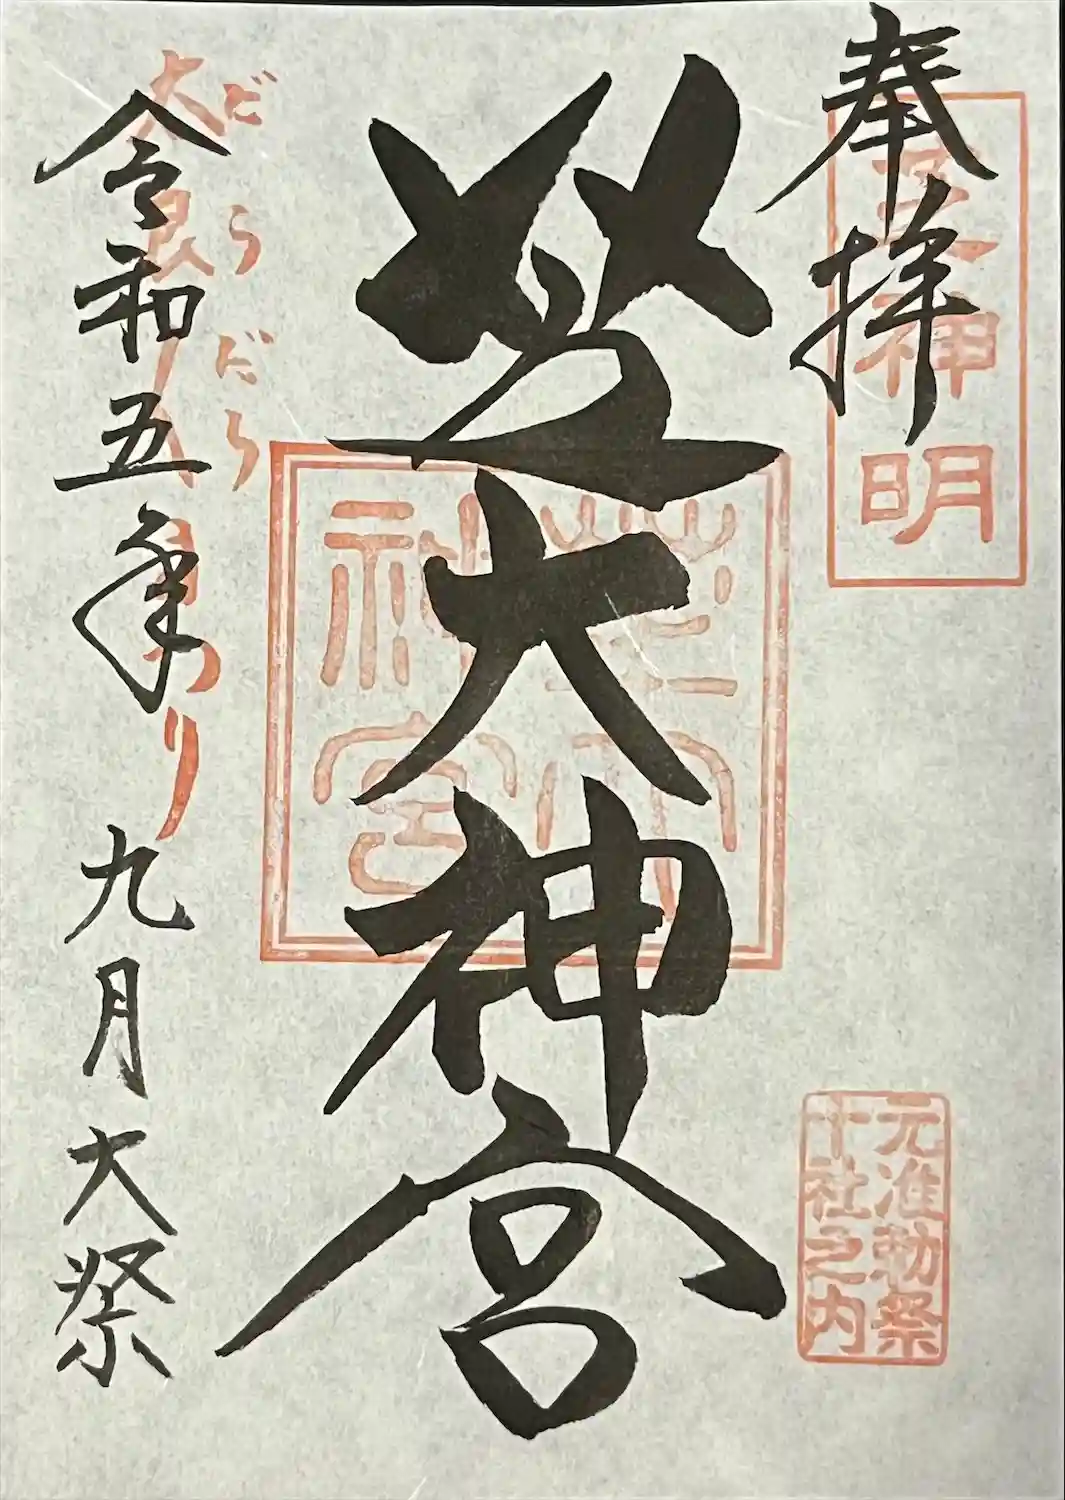 奉拝
芝神明
元准勅祭
十社之内
芝大神宮
芝大
神宮
だらだら
令和五年
九月大祭